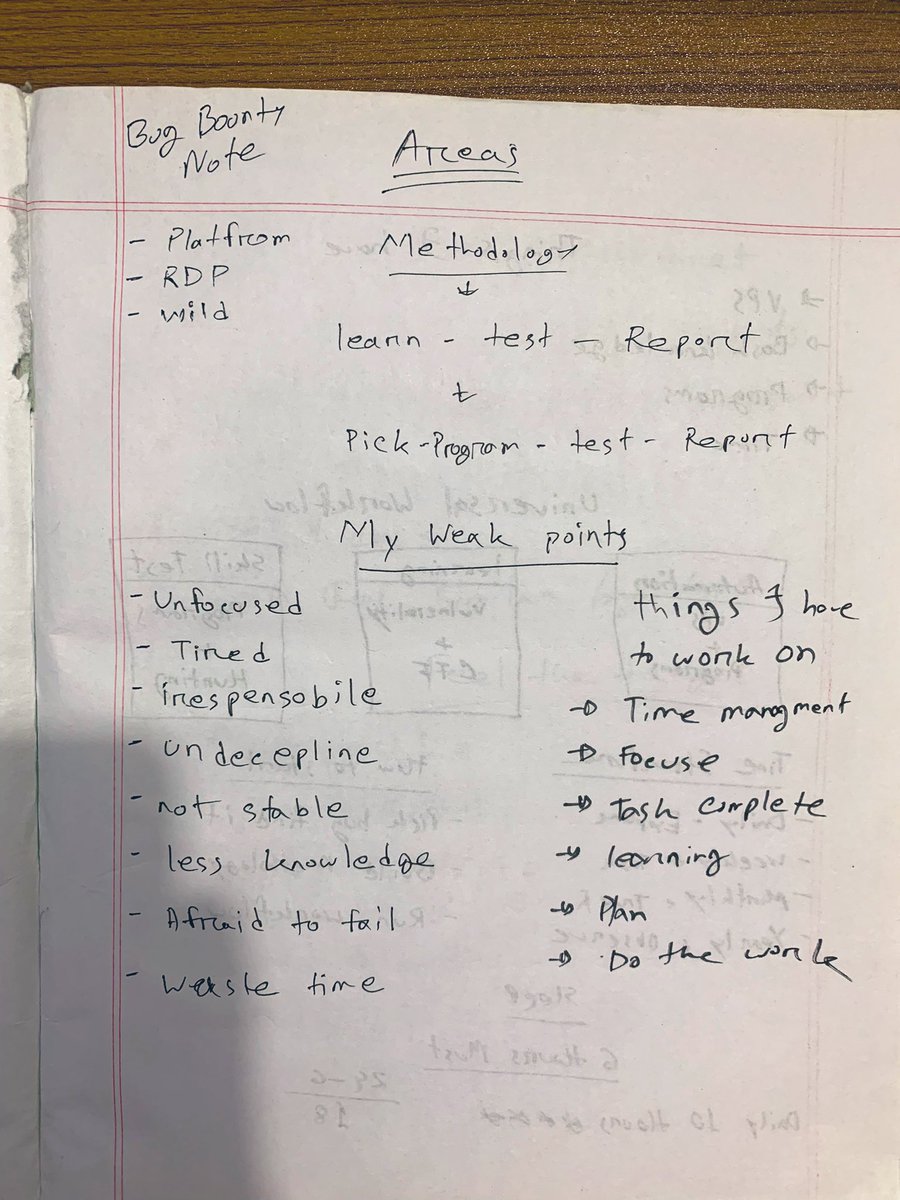 Bug Bounty
Note
Areas
- Platfrom
- RDP
- wild
Methodology
learn - test - Report
Pick-Program - test - Report
My Weak points
- Unfocused
- Tired
- irespensobile
- undecepline
- not stable
- less knowledge
- Afraid to fail
- time
things I have
to work on
→ Time managment
→ Focuse
→ Task complete
→ learning
→ Plan
→ Do the work